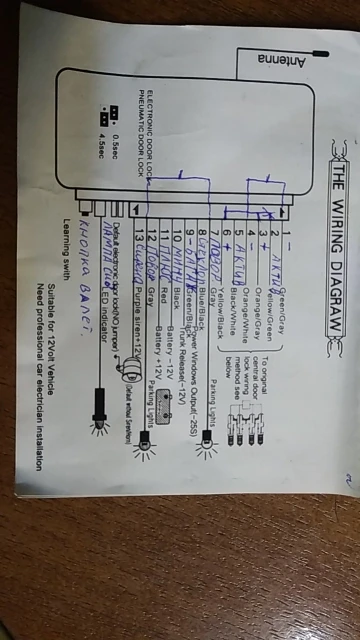 THE WIRING DIAGRAW
Antenna
ELECTRONIC DOOR LOCK
PNEUMATIC DOOR LOCK
0.5sec
4.5sec
1 Green/Gray
2 Yellow/Green
3 Orange/Gray
4 Orange/White
5 Black/White
6 Yellow/Black
7 Gray
8 Blue/Black
9 Green/Black
10 Black
11 Red
12 Gray
13 Purple siren+12V
To original
central door
lock wiring
method see
below
Parking Lights
Power Windows Output(-25S)
Trunk Release(-12V)
Battery -12V
Battery +12V
Parking Lights
LED indicator
КНОПКА ВАЛЕТ.
Learning swith
Suitable for 12Volt Vehicle
Need professional car electrician installation